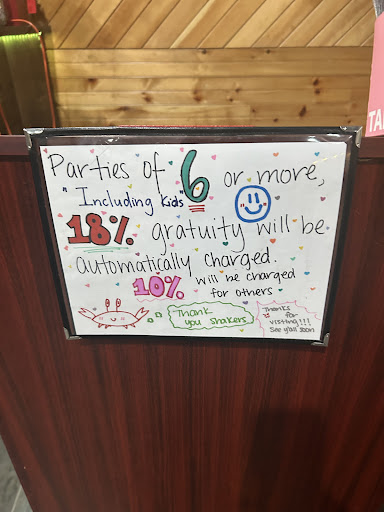 Parties of 6 or more,
"Including kids"
18% gratuity will be
automatically charged.
10% will be charged
for others
Thank
you Shakers
Thanks
for
visiting!!!
See y'all soon
TA